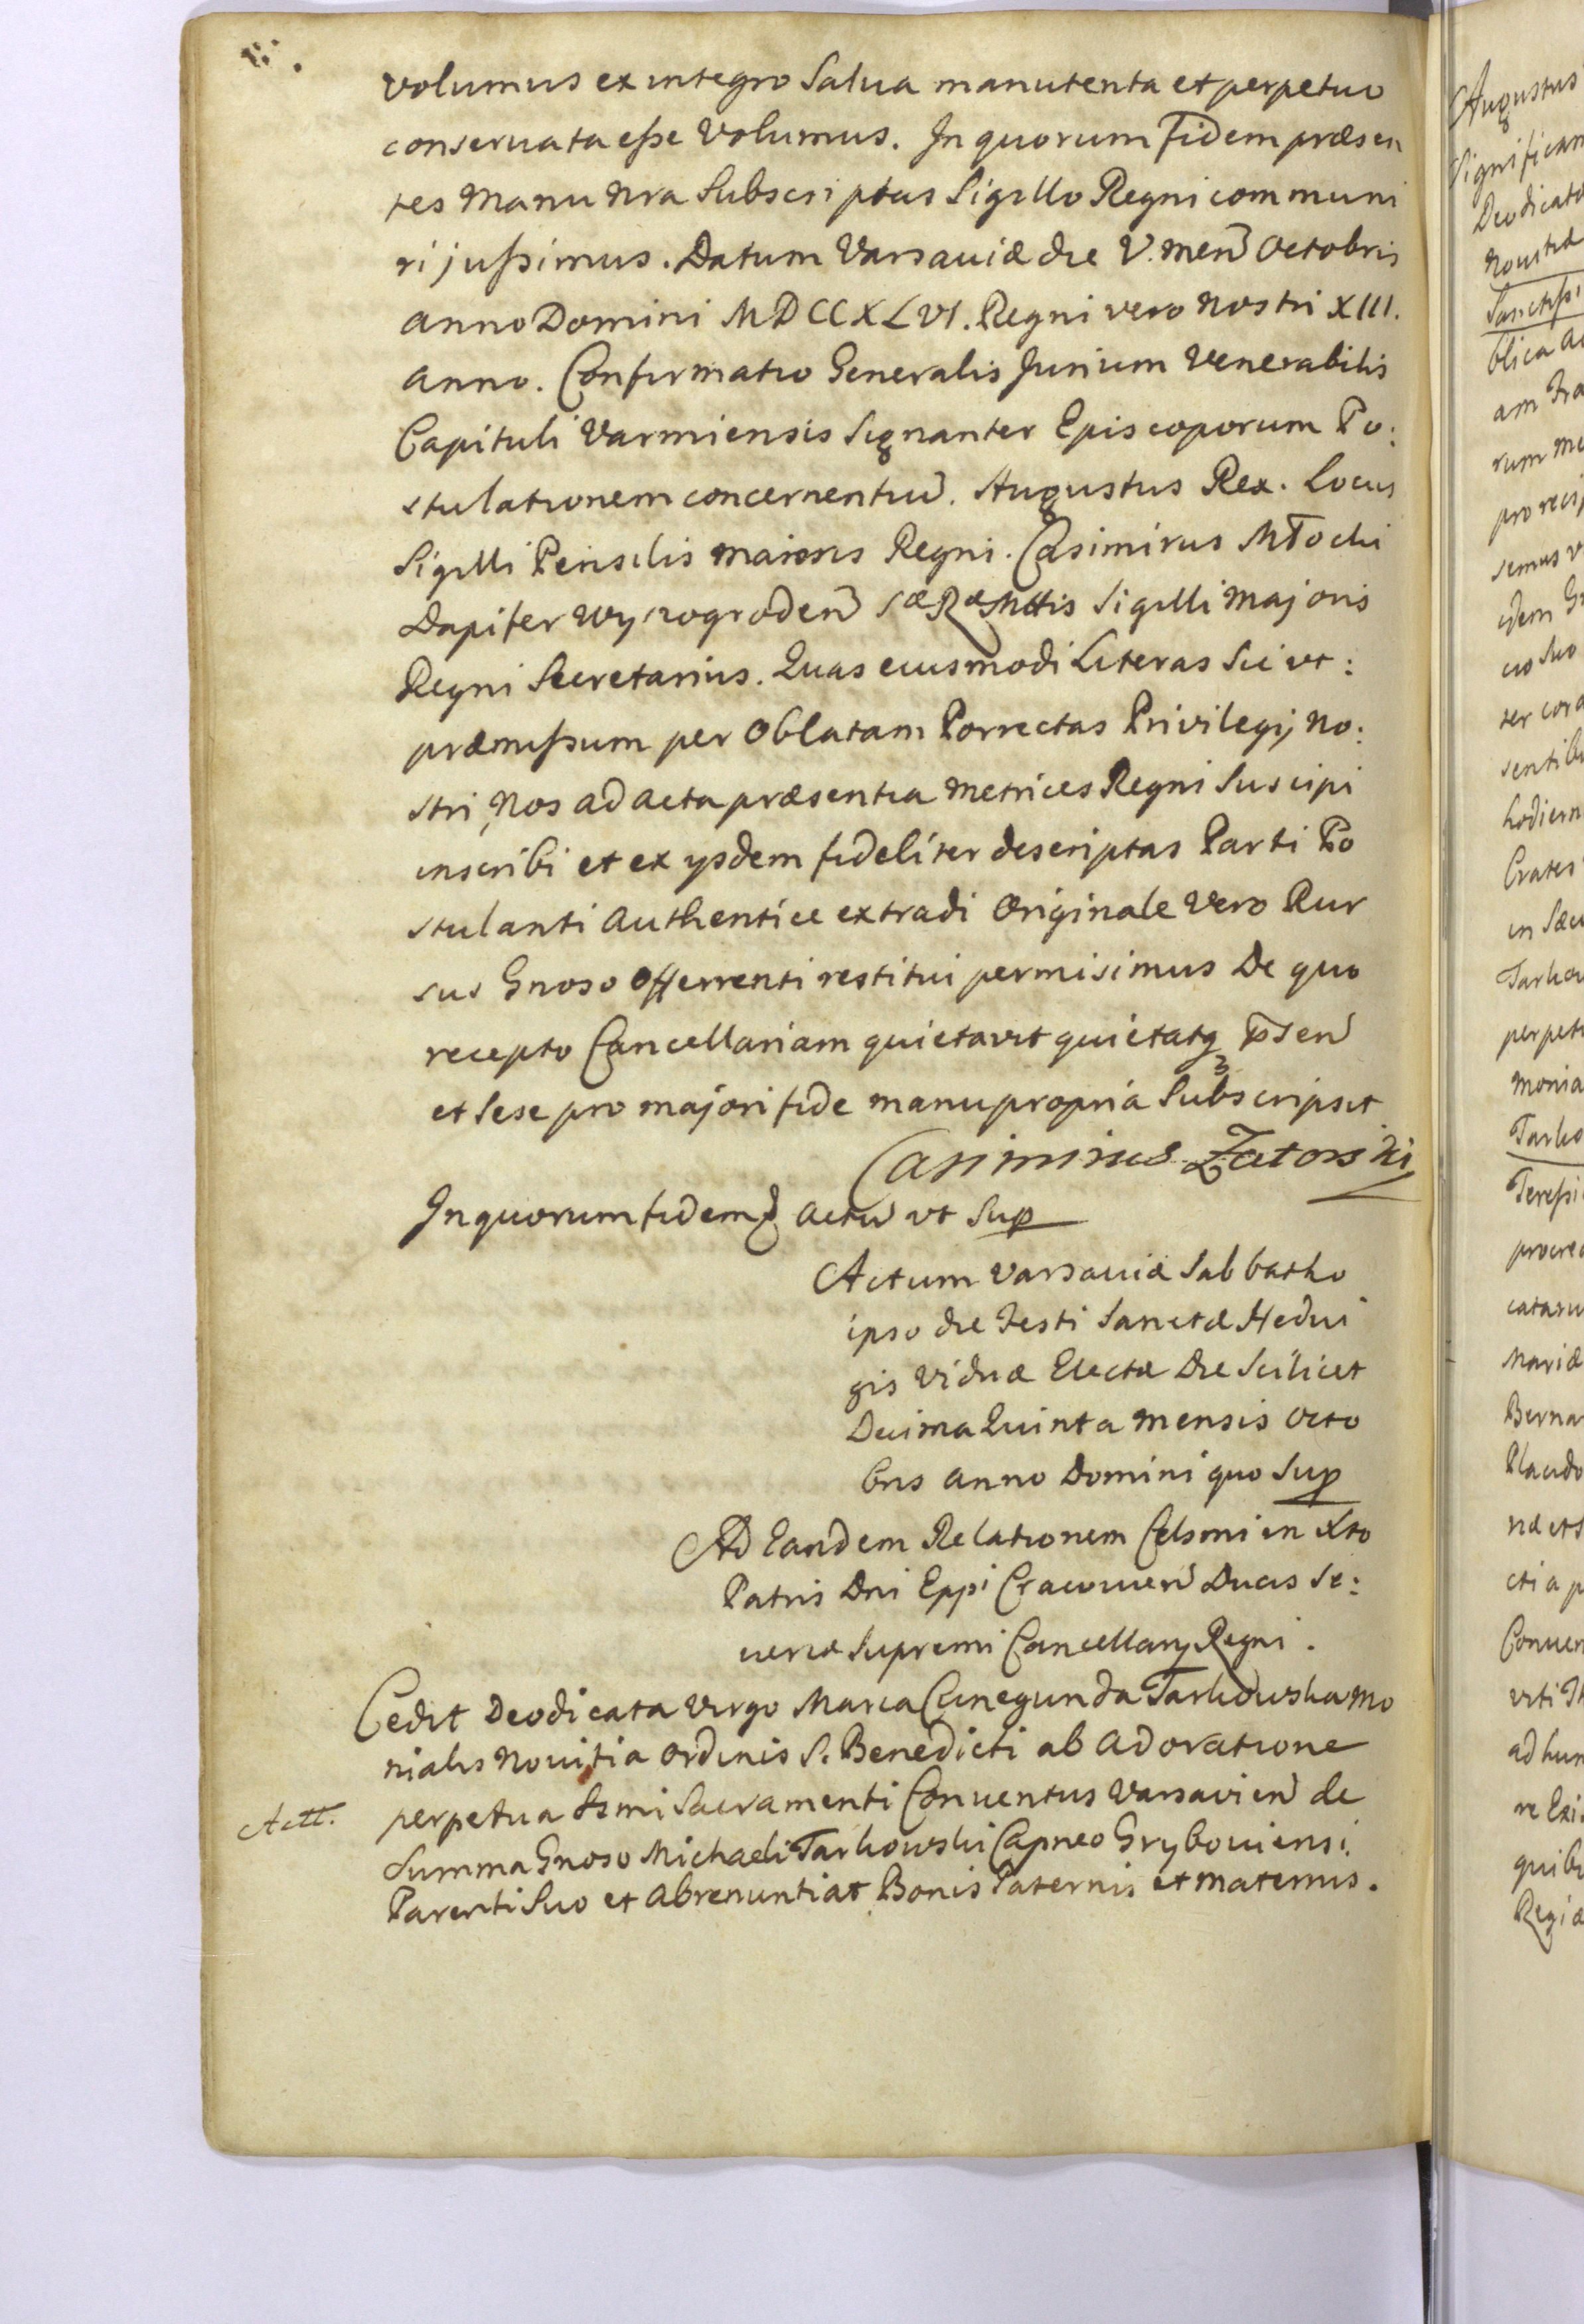 volumus ex integro Salua manutenta et perpetuo
conseruata eſse Volumus. In quorum fidem præsen
tes Manu Nra Subscriptas Sigillo Regni communi
ri juſsimus. Datum Varsaviæ die V. men̄ Octobris
anno Domini MDCCXLVI. Regni vero Nostri XIII.
anno. Confirmatio Generalis Jurium Venerabilis
Capituli Varmiensis Signanter Episcoporum Po:
stulationem concernentiū. Augustus Rex. Locus
Sigilli Pensilis maioris Regni. Casimirus Młocki
Dapifer Wyszogroden̄ Sæ Ræ Mttis Sigilli Majoris
Regni Secretarius. Quas eiusmodi Literas Sic ut:
præmiſsum per Oblatam Porrectas Privilegij No:
stri, Nos ad acta præsentia Metrices Regni Suscipi
inscribi et ex ysdem fideliter descriptas Parti Po
stulanti Authentice extradi Originale Vero Rur
sus Gnoso Offerenti restitui permisimus De quo
recepto Cancellariam quietavit quietatq₃ p̄sen̄
et Sese pro majori fide manu propria Subscripsit
Casimirus Zatorski
In quorum fidem actū ut Sup
Actum Varsaviæ Sabbatho
ipso die Festi Sanctæ Hedui
gis Viduæ Electæ Die Scilicet
Decima Quinta Mensis Octo
bris Anno Domini quo Sup
Ad Eandem Relationem Celsmi in Xto
Patris Dni Eppi Cracouien̄ Ducis Se:
ueriæ Supremi Cancellarij Regni.
Cedit Deodicata Virgo Maria Cunegunda Tarkowska Mo
nialis Nouitia Ordinis S. Benedicti ab Adoratione
Actt. perpetua Ssmi Sacramenti Conuentus Varsavien̄ de
Summa Gnoso Michaeli Tarkowski Capneo Grybouiensi
Parenti Suo et Abrenuntiat Bonis Paternis et Maternis.
Augustus
Deodicata
blica
perpet
Monia
Mariæ
Berna
Conuen
Regiæ